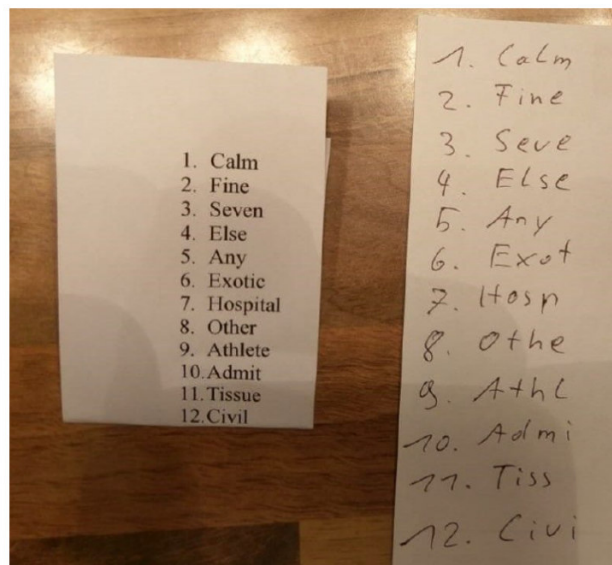 1. Calm
2. Fine
3. Seven
4. Else
5. Any
6. Exotic
7. Hospital
8. Other
9. Athlete
10. Admit
11. Tissue
12. Civil
1. Calm
2. Fine
3. Seve
4. Else
5. Any
6. Exot
7. Hosp
8. Othe
9. Athl
10. Admi
11. Tiss
12. Civi